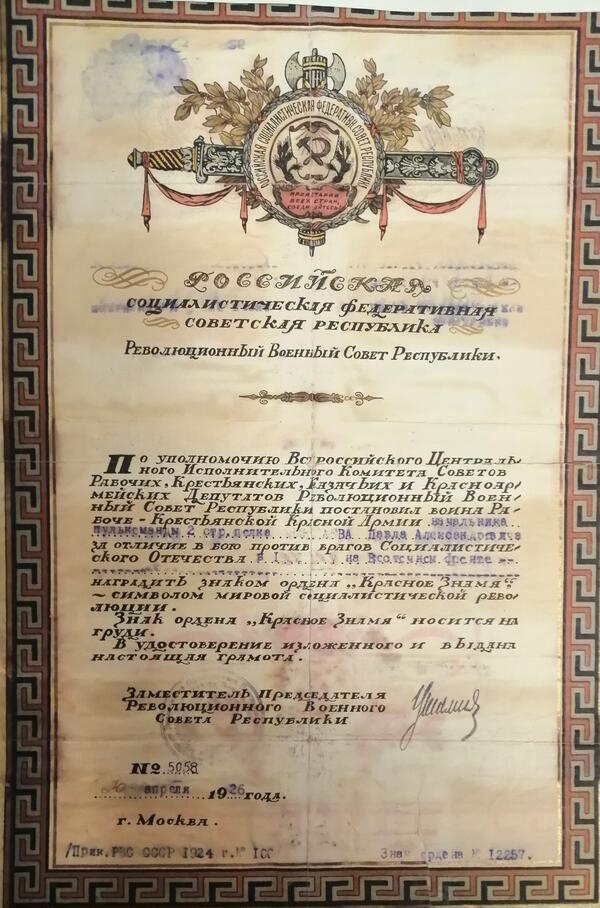 РОССИЙСКАЯ СОЦИАЛИСТИЧЕСКАЯ ФЕДЕРАТИВН. СОВЕТ. РЕСПУБЛИКА
ПРОЛЕТАРИИ
ВСЕХ СТРАН,
СОЕДИНЯЙТЕСЬ!
РОССИЙСКАЯ
СОЦИАЛИСТИЧЕСКАЯ ФЕДЕРАТИВНАЯ
СОВЕТСКАЯ РЕСПУБЛИКА
Революционный Военный Совет Республики.
По уполномочию Всероссийского Централь-
ного Исполнительного Комитета Советов
Рабочих, Крестьянских, Казачьих и Красноар-
мейских Депутатов Революционный Воен-
ный Совет Республики постановил воина Ра-
боче-Крестьянской Красной Армии начальника
пулькоманды 2 стр. полка ВА Павла Александровича
за отличие в бою против врагов Социалистиче-
ского Отечества в на Восточном фронте
наградить знаком ордена „Красное Знамя“
~ символом мировой социалистической рево-
люции.
Знак ордена „Красное Знамя“ носится на
груди.
В удостоверение изложенного и выдана
настоящая грамота.
Заместитель Председателя
Революционного Военного
Совета Республики
№ 5058
апреля 1926 года.
г. Москва.
/Прик. РВС СССР 1924 г. №
Знак ордена № 12257.